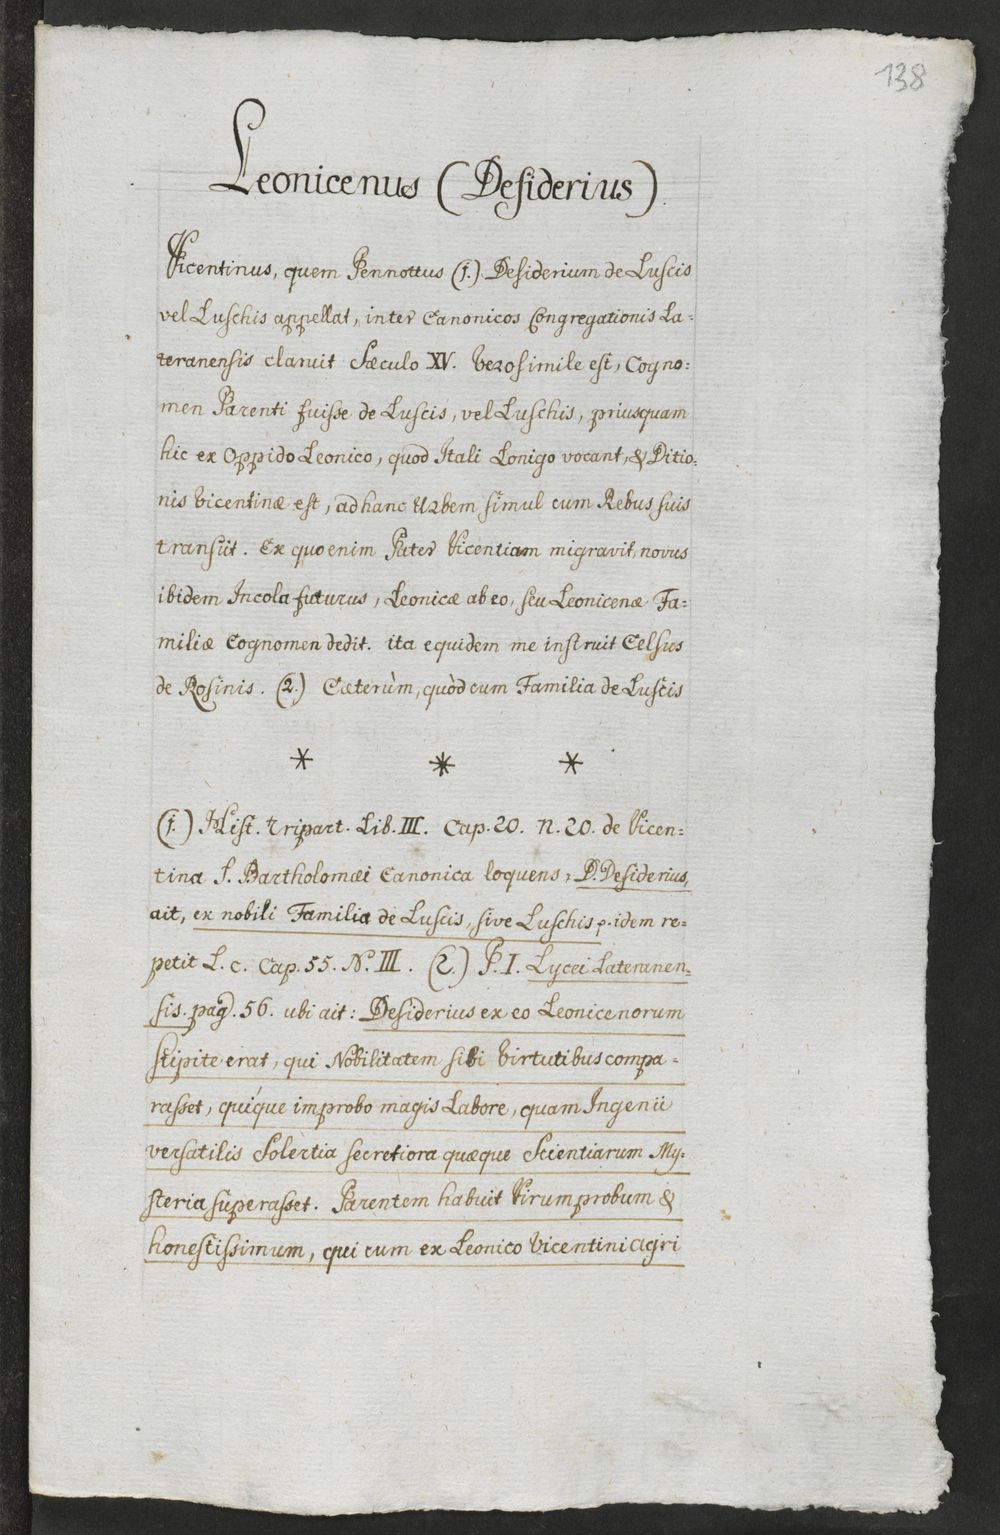 138
Leonicenus (Desiderius).
Vicentinus, quem Pennottus (1.) Desiderium de Luscis
vel Luschis appellat, inter Canonicos Congregationis La=
teranensis claruit Sæculo XV. Verosimile est, Cogno=
men Parenti fuisse de Luscis, vel Luschis, priusquam
hic ex Oppido Leonico, quod Itali Lonigo vocant, & Ditio=
nis Vicentinæ est, ad hanc Urbem simul cum Rebus suis
transiit. Ex quo enim Pater Vicentiam migravit, novus
ibidem Incola futurus, Leonicæ ab eo, seu Leonicenæ Fa=
miliæ Cognomen dedit. ita equidem me instruit Celsus
de Rosinis. (2.) Cæterùm, quòd cum Familia de Luscis
* * *
(1.) Hist. tripart. Lib. III. Cap. 20. n. 20. de Vicen=
tina S. Bartholomæi Canonica loquens, D. Desiderius,
ait, ex nobili Familia de Luscis, sive Luschis p. idem re=
petit L. c. Cap. 55. N. III. (2.) P. I. Lycei Lateranen=
sis. pag. 56. ubi ait: Desiderius ex eo Leonicenorum
stipite erat, qui Nobilitatem sibi Virtutibus compa=
rasset, quique improbo magis Labore, quam Ingenii
versatilis Solertia secretiora quæque Scientiarum My=
steria superasset. Parentem habuit Virum probum &
honestissimum, qui cum ex Leonico Vicentini agri